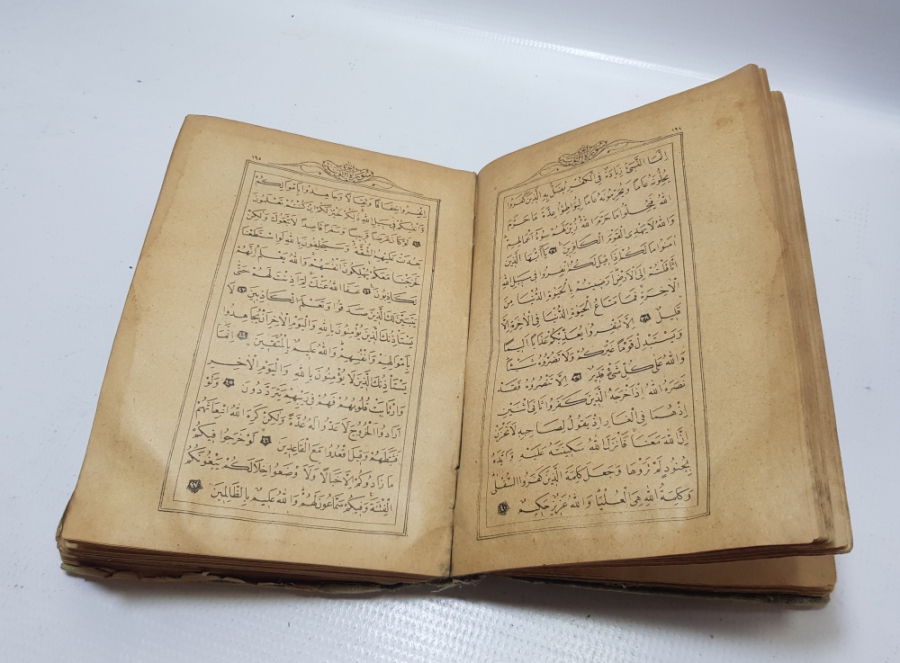 ١٩٤
اِنَّمَا النَّسِيءُ زِيَادَةٌ فِي الْكُفْرِ يُضَلُّ بِهِ الَّذِينَ كَفَرُوا
يُحِلُّونَهُ عَامًا وَيُحَرِّمُونَهُ عَامًا لِيُوَاطِؤُا عِدَّةَ مَا حَرَّمَ
اللهُ فَيُحِلُّوا مَا حَرَّمَ اللهُ زُيِّنَ لَهُمْ سُوءُ اَعْمَالِهِمْ
وَاللهُ لَا يَهْدِي الْقَوْمَ الْكَافِرِينَ ٣٧ يَا اَيُّهَا الَّذِينَ
اٰمَنُوا مَا لَكُمْ اِذَا قِيلَ لَكُمُ انْفِرُوا فِي سَبِيلِ اللهِ
اثَّاقَلْتُمْ اِلَى الْاَرْضِ اَرَضِيتُمْ بِالْحَيٰوةِ الدُّنْيَا مِنَ
الْاٰخِرَةِ فَمَا مَتَاعُ الْحَيٰوةِ الدُّنْيَا فِي الْاٰخِرَةِ اِلَّا
قَلِيلٌ ٣٨ اِلَّا تَنْفِرُوا يُعَذِّبْكُمْ عَذَابًا اَلِيمًا
وَيَسْتَبْدِلْ قَوْمًا غَيْرَكُمْ وَلَا تَضُرُّوهُ شَيْئًا
وَاللهُ عَلٰى كُلِّ شَيْءٍ قَدِيرٌ ٣٩ اِلَّا تَنْصُرُوهُ فَقَدْ
نَصَرَهُ اللهُ اِذْ اَخْرَجَهُ الَّذِينَ كَفَرُوا ثَانِيَ اثْنَيْنِ
اِذْ هُمَا فِي الْغَارِ اِذْ يَقُولُ لِصَاحِبِهِ لَا تَحْزَنْ
اِنَّ اللهَ مَعَنَا فَاَنْزَلَ اللهُ سَكِينَتَهُ عَلَيْهِ وَاَيَّدَهُ
بِجُنُودٍ لَمْ تَرَوْهَا وَجَعَلَ كَلِمَةَ الَّذِينَ كَفَرُوا السُّفْلٰى
وَكَلِمَةُ اللهِ هِيَ الْعُلْيَا وَاللهُ عَزِيزٌ حَكِيمٌ ٤٠
١٩٥
اِنْفِرُوا خِفَافًا وَثِقَالًا وَجَاهِدُوا بِاَمْوَالِكُمْ
وَاَنْفُسِكُمْ فِي سَبِيلِ اللهِ ذٰلِكُمْ خَيْرٌ لَكُمْ اِنْ كُنْتُمْ تَعْلَمُونَ
٤١ لَوْ كَانَ عَرَضًا قَرِيبًا وَسَفَرًا قَاصِدًا لَاتَّبَعُوكَ وَلٰكِنْ
بَعُدَتْ عَلَيْهِمُ الشُّقَّةُ وَسَيَحْلِفُونَ بِاللهِ لَوِ اسْتَطَعْنَا
لَخَرَجْنَا مَعَكُمْ يُهْلِكُونَ اَنْفُسَهُمْ وَاللهُ يَعْلَمُ اِنَّهُمْ
لَكَاذِبُونَ ٤٢ عَفَا اللهُ عَنْكَ لِمَ اَذِنْتَ لَهُمْ حَتّٰى
يَتَبَيَّنَ لَكَ الَّذِينَ صَدَقُوا وَتَعْلَمَ الْكَاذِبِينَ ٤٣ لَا
يَسْتَأْذِنُكَ الَّذِينَ يُؤْمِنُونَ بِاللهِ وَالْيَوْمِ الْاٰخِرِ اَنْ يُجَاهِدُوا
بِاَمْوَالِهِمْ وَاَنْفُسِهِمْ وَاللهُ عَلِيمٌ بِالْمُتَّقِينَ ٤٤ اِنَّمَا
يَسْتَأْذِنُكَ الَّذِينَ لَا يُؤْمِنُونَ بِاللهِ وَالْيَوْمِ الْاٰخِرِ
وَارْتَابَتْ قُلُوبُهُمْ فَهُمْ فِي رَيْبِهِمْ يَتَرَدَّدُونَ ٤٥ وَلَوْ
اَرَادُوا الْخُرُوجَ لَاَعَدُّوا لَهُ عُدَّةً وَلٰكِنْ كَرِهَ اللهُ انْبِعَاثَهُمْ
فَثَبَّطَهُمْ وَقِيلَ اقْعُدُوا مَعَ الْقَاعِدِينَ ٤٦ لَوْ خَرَجُوا فِيكُمْ
مَا زَادُوكُمْ اِلَّا خَبَالًا وَلَاَ۬اوْضَعُوا خِلَالَكُمْ يَبْغُونَكُمُ
الْفِتْنَةَ وَفِيكُمْ سَمَّاعُونَ لَهُمْ وَاللهُ عَلِيمٌ بِالظَّالِمِينَ ٤٧